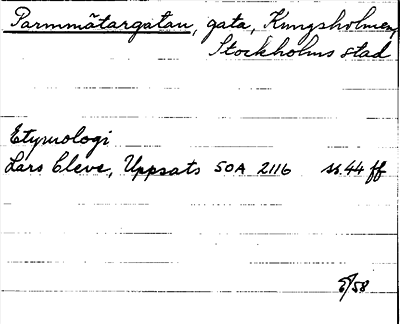 Parmmätargatan, gata, Kungsholmen,
Stockholms stad
Etymologi
Lars Cleve, Uppsats SOA 2116 ss. 44 ff